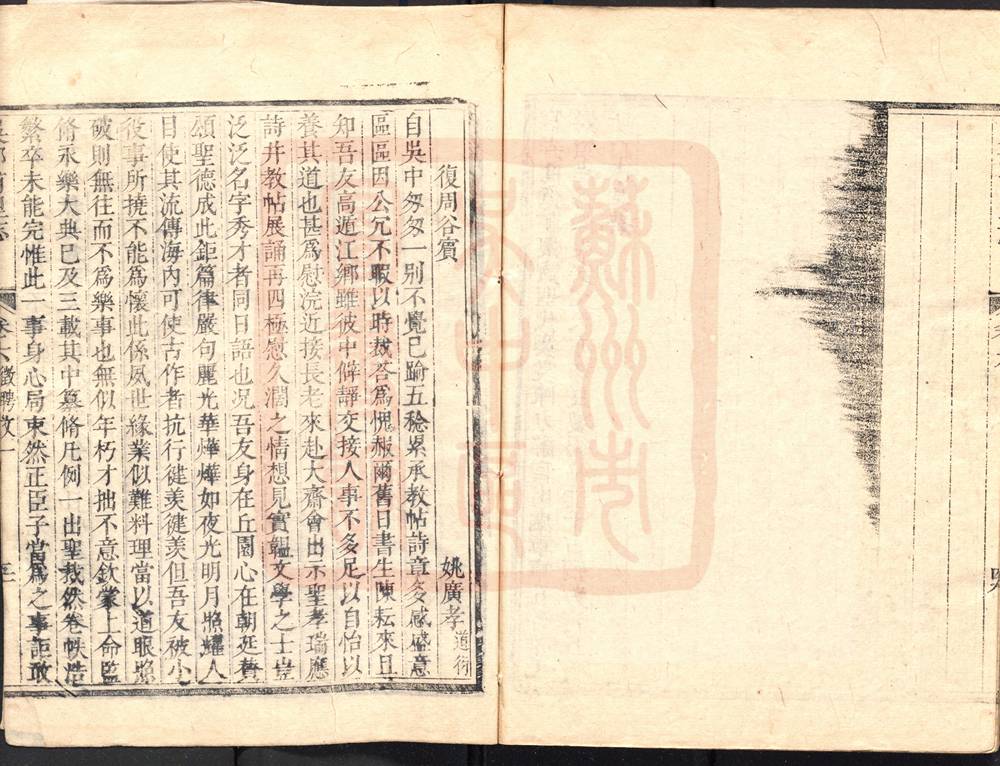 復周谷賓
姚廣孝道衍
自吳中匆匆一別不覺已踰五稔累承教帖詩章多感盛意
區區因公冗不暇以時裁答為愧赧爾舊日書生陳耘來且
知吾友高遁江鄉雖彼中僻靜交接人事不多足以自怡以
養其道也甚為慰浣近接長老來赴大齋會出示聖孝瑞應
詩并教帖展誦再四極慰久濶之情想見實韞文學之士豈
泛泛名字秀才者同日語也况吾友身在丘園心在朝廷賛
頌聖德成此鉅篇律嚴句麗光華燁燁如夜光明月照耀人
目使其流傳海內可使古作者抗行徤羡徤羡但吾友被小
役事所撓不能為懷此係夙世緣業似難料理當以道眼照
破則無往而不為樂事也無似年朽才拙不意欽蒙上命監
脩永樂大典已及三載其中纂脩凡例一出聖裁然卷帙浩
繁卒未能完惟此一事身心局束然正臣子當為之事詎敢
卷之六徵聘文一
三
蘇州市